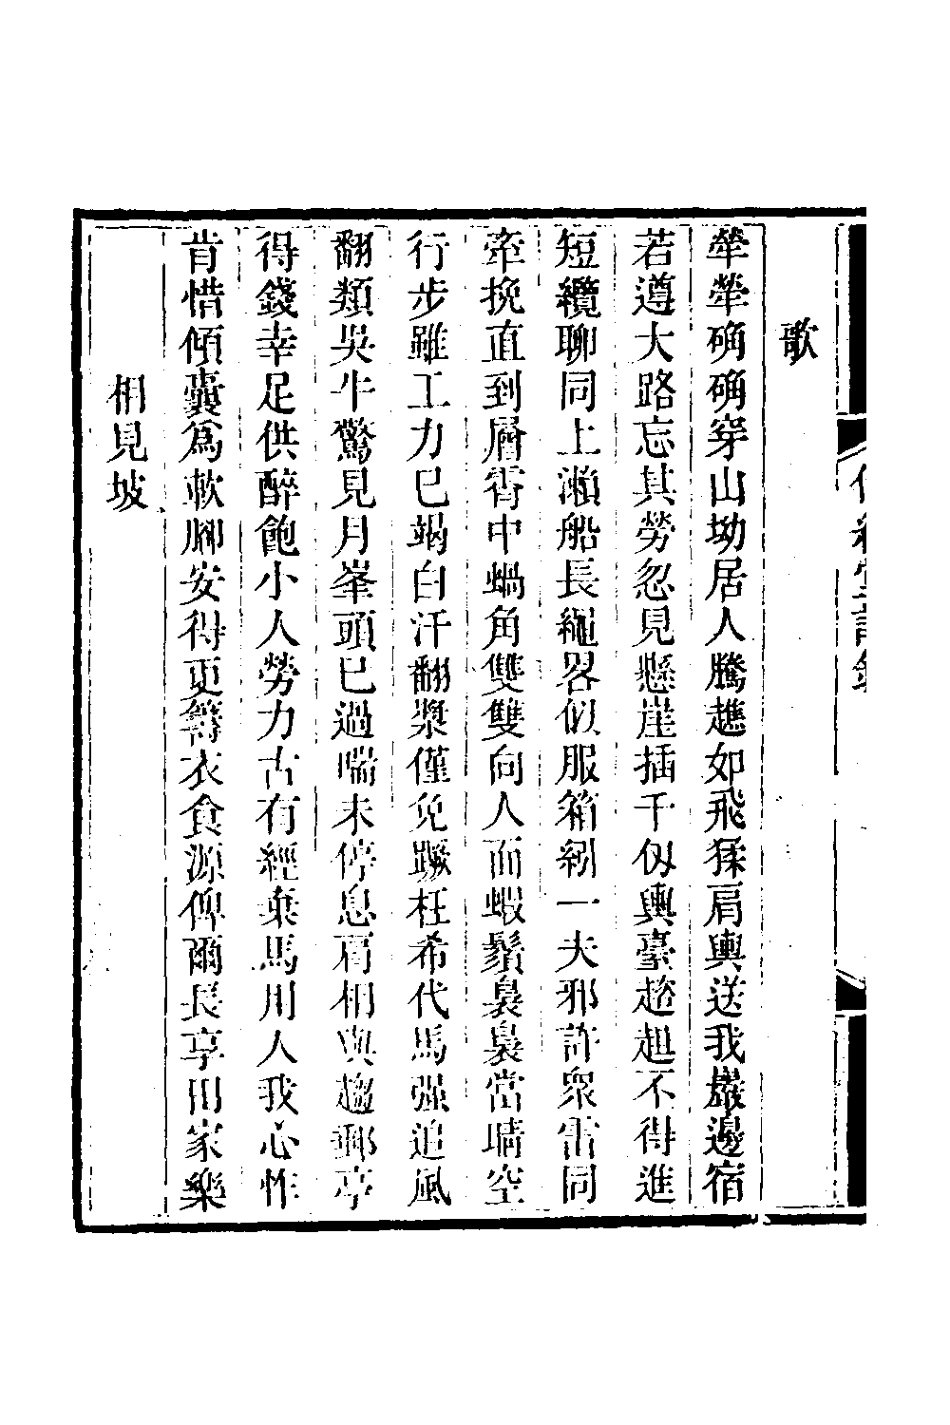 歌
犖犖确确穿山坳居人騰趫如飛猱肩輿送我巖邊宿
若遵大路忘其勞忽見懸崖插千仭輿臺趑趄不得進
短纜聊同上瀨船長繩畧似服箱紖一夫邪許眾雷同
牽挽直到層霄中蝸角雙雙向人面蝦鬚裊裊當晴空
行步雖工力已竭白汗翻漿僅免蹶枉希代馬强追風
翻類吳牛驚見月峯頭已過喘未停息肩相與趨郵亭
得錢幸足供醉飽小人勞力古有經棄馬用人我心怍
肯惜傾囊爲軟腳安得更籌衣食源俾爾長享田家樂
相見坡